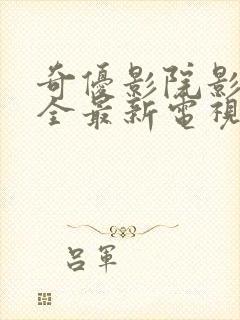 奇優影院影
全最新電視
呂軍